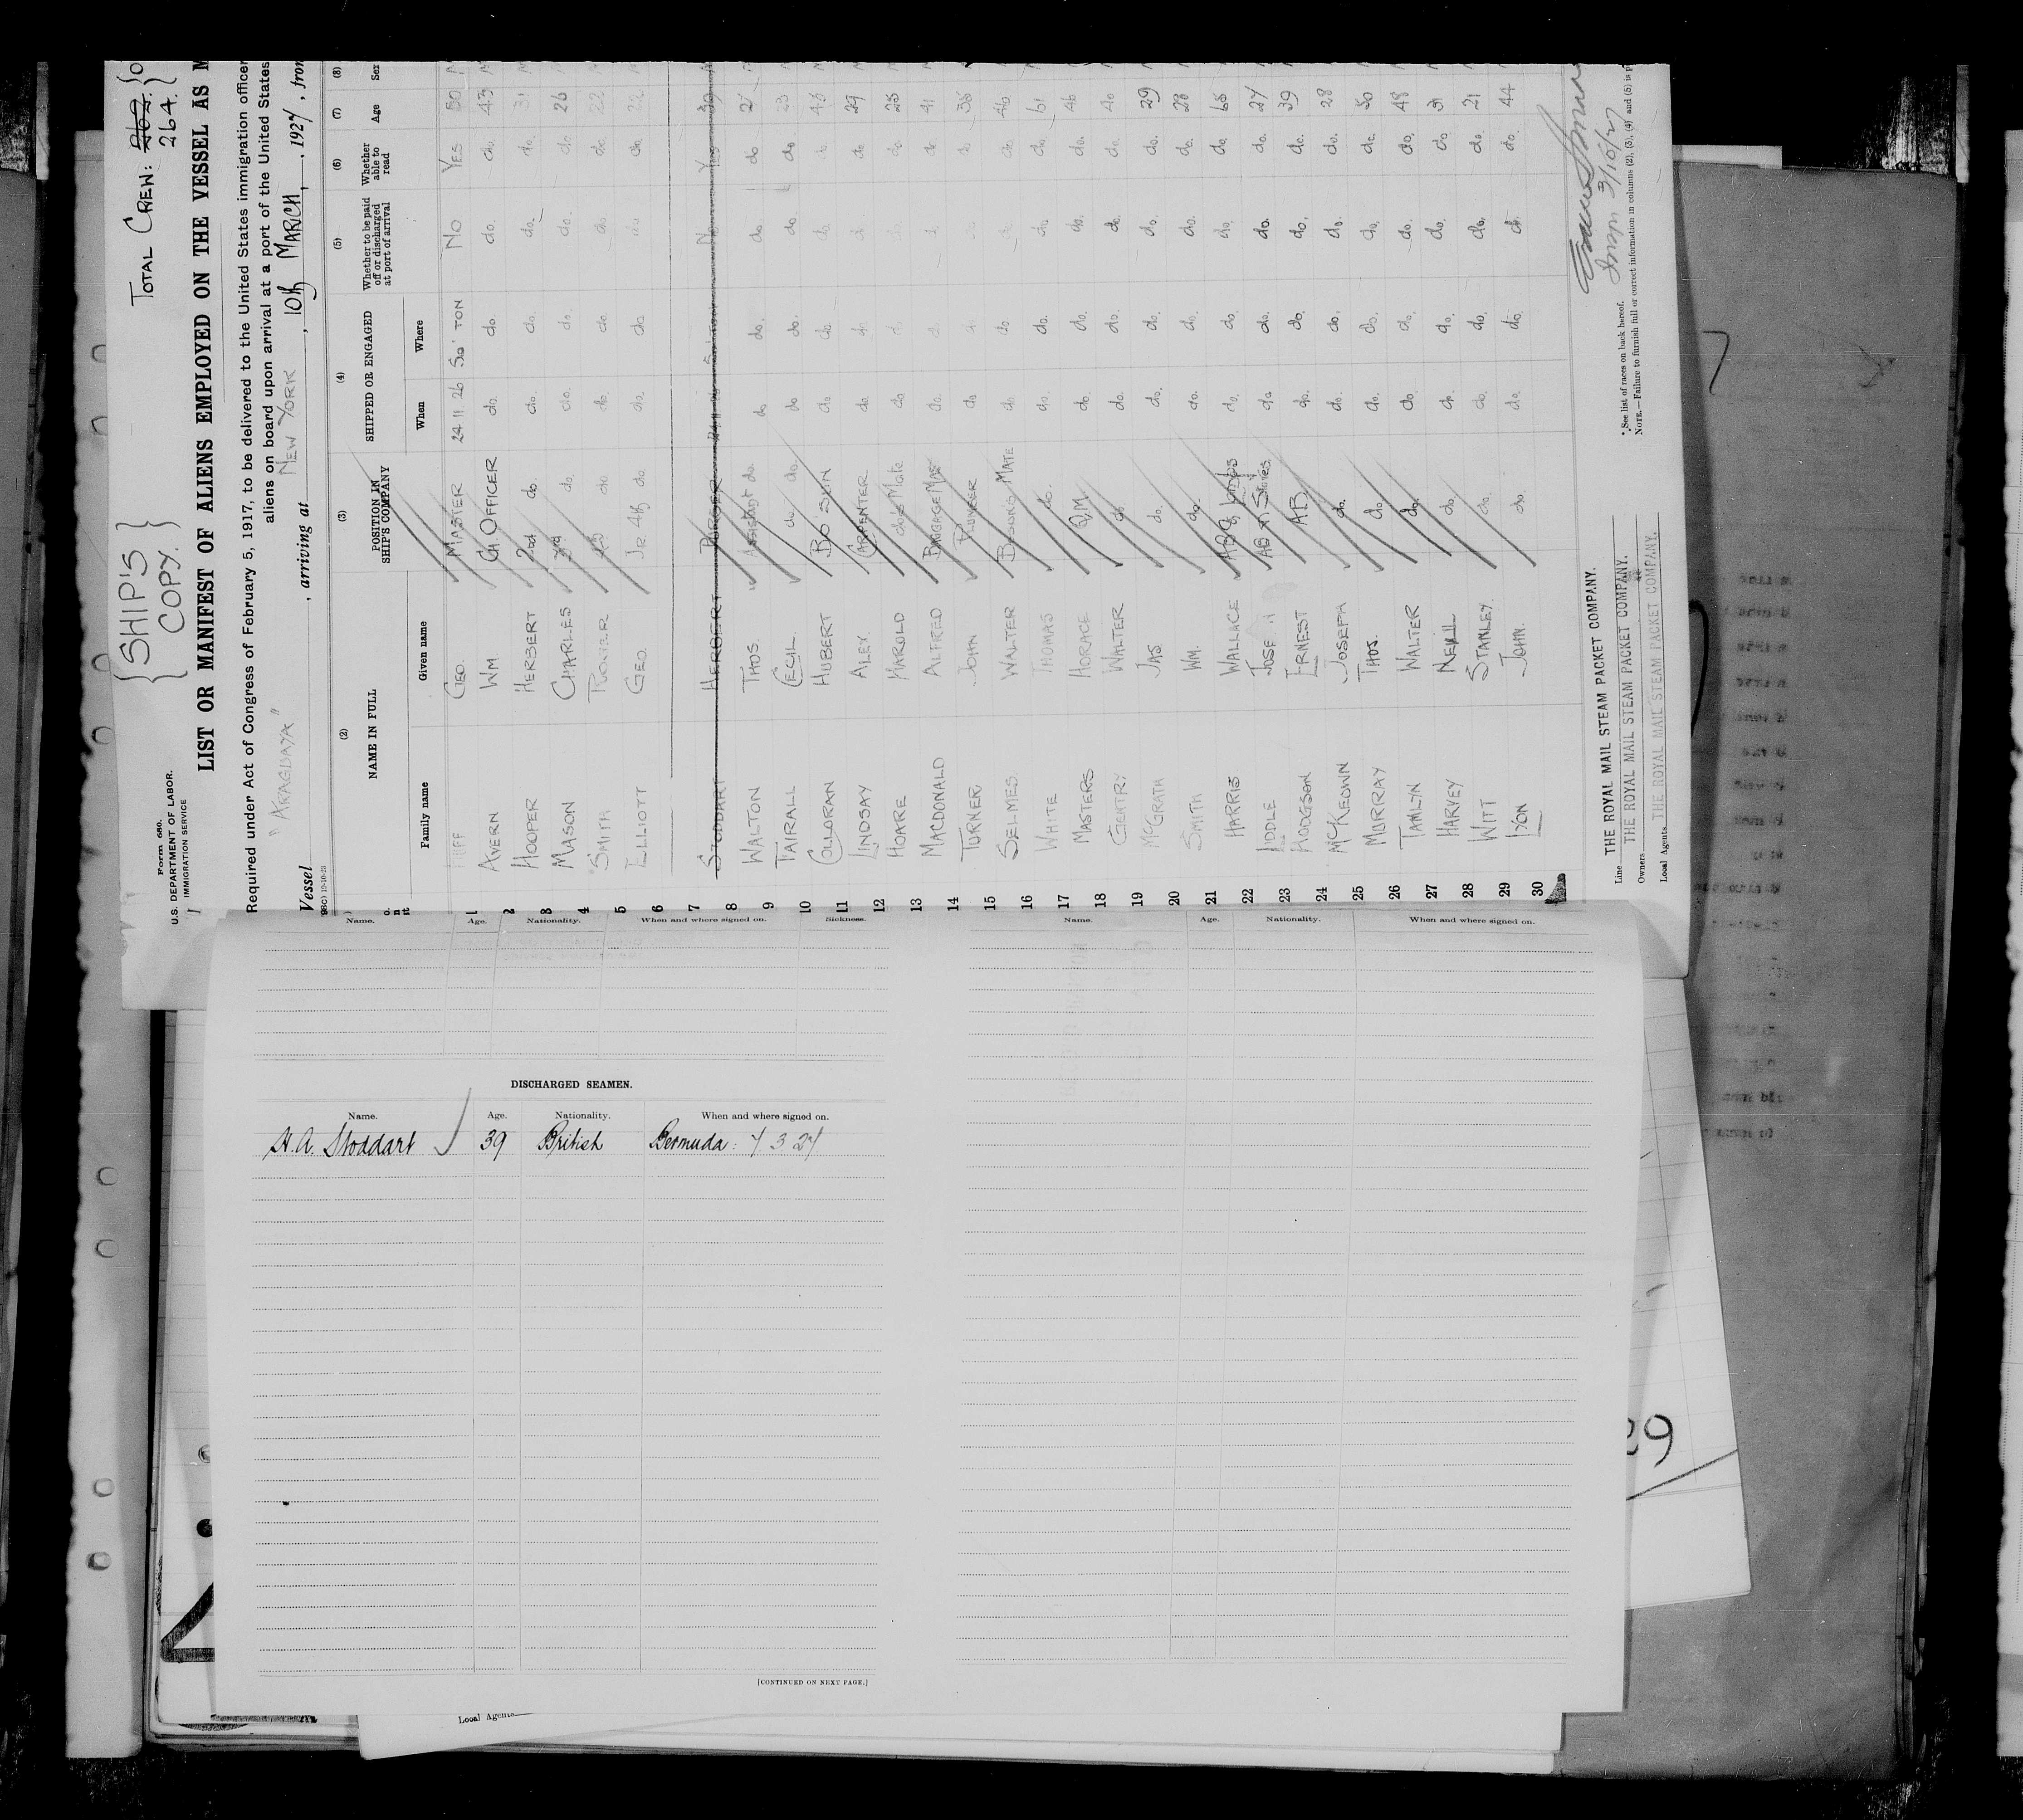 {SHIP'S
COPY.}
TOTAL CREW: 262.
264.
Form 680.
U.S. DEPARTMENT OF LABOR.
IMMIGRATION SERVICE
LIST OR MANIFEST OF ALIENS EMPLOYED ON THE VESSEL AS M
Required under Act of Congress of February 5, 1917, to be delivered to the United States immigration officer
aliens on board upon arrival at a port of the United States
Vessel "ARAGUAYA", arriving at NEW YORK, 10th MARCH, 1927, from
(2) (3) (4) (5) (6) (7) (8)
NAME IN FULL POSITION IN SHIP'S COMPANY SHIPPED OR ENGAGED Whether to be paid off or discharged at port of arrival Whether able to read Age Sex
Family name Given name When Where
GEO. MASTER 24 11 26 SO'TON NO YES 50
AVERN WM. CH. OFFICER do. do. do. do. 43
HOOPER HERBERT 2nd do do. do. do. do. 31
MASON CHARLES do. do. do. do. do. 26
SMITH do do. do do do 22
ELLIOTT GEO. JR. 4th do. do. do. do. do.
STODDART HERBERT PURSER
WALTON THOS. ASSISTANT do. do do. do. do 27
FAIRALL CECIL do. do. do do. do do. 23
COLLORAN HUBERT BO'SUN do. do do
LINDSAY ALEX. CARPENTER do. do. 29
HOARE HAROLD do's Mate do do.
MACDONALD ALFRED BAGGAGE MAS do. do. 41
TURNER JOHN do 36
SELMES. WALTER BOSUN'S MATE do. do do 46
WHITE THOMAS do. do. do. do. do. 61
MASTERS HORACE Q.M. do. do. do. do. 46
GENTRY WALTER do do. do. do. do. 40
McGRATH JAS. do. do. do. do. do. 29
SMITH WM. do. do. do. do. do. 28
HARRIS WALLACE AB & Lamps do. do do. do
LIDDLE do do. do. do. 27
HODGSON ERNEST AB do. do. do. do. 39
McKEOWN JOSEPH do. do. do. do. do. 28
MURRAY THOS. do do. do. do. do. 50
TAMLYN WALTER do. do do. do. do. 48
HARVEY NEILL do. do. do. do. do 31
WITT STANLEY. do. do. do. do. do. 21
LYON JOHN. do. do. do. do. do. 44
1 2 3 4 5 6 7 8 9 10 11 12 13 14 15 16 17 18 19 20 21 22 23 24 25 26 27 28 29 30
Line THE ROYAL MAIL STEAM PACKET COMPANY.
Owners THE ROYAL MAIL STEAM PACKET COMPANY.
Local Agents THE ROYAL MAIL STEAM PACKET COMPANY.
* See list of races on back hereof.
NOTE.—Failure to furnish full or correct information in columns (2), (3), (4) and (5) is p
3/10/27
Name. Age. Nationality. When and where signed on. Sickness.
Name. Age. Nationality. When and where signed on.
DISCHARGED SEAMEN.
Name. Age. Nationality. When and where signed on.
H.A. Stoddart 39 British Bermuda: 7 3 27
[CONTINUED ON NEXT PAGE.]
Local Agents